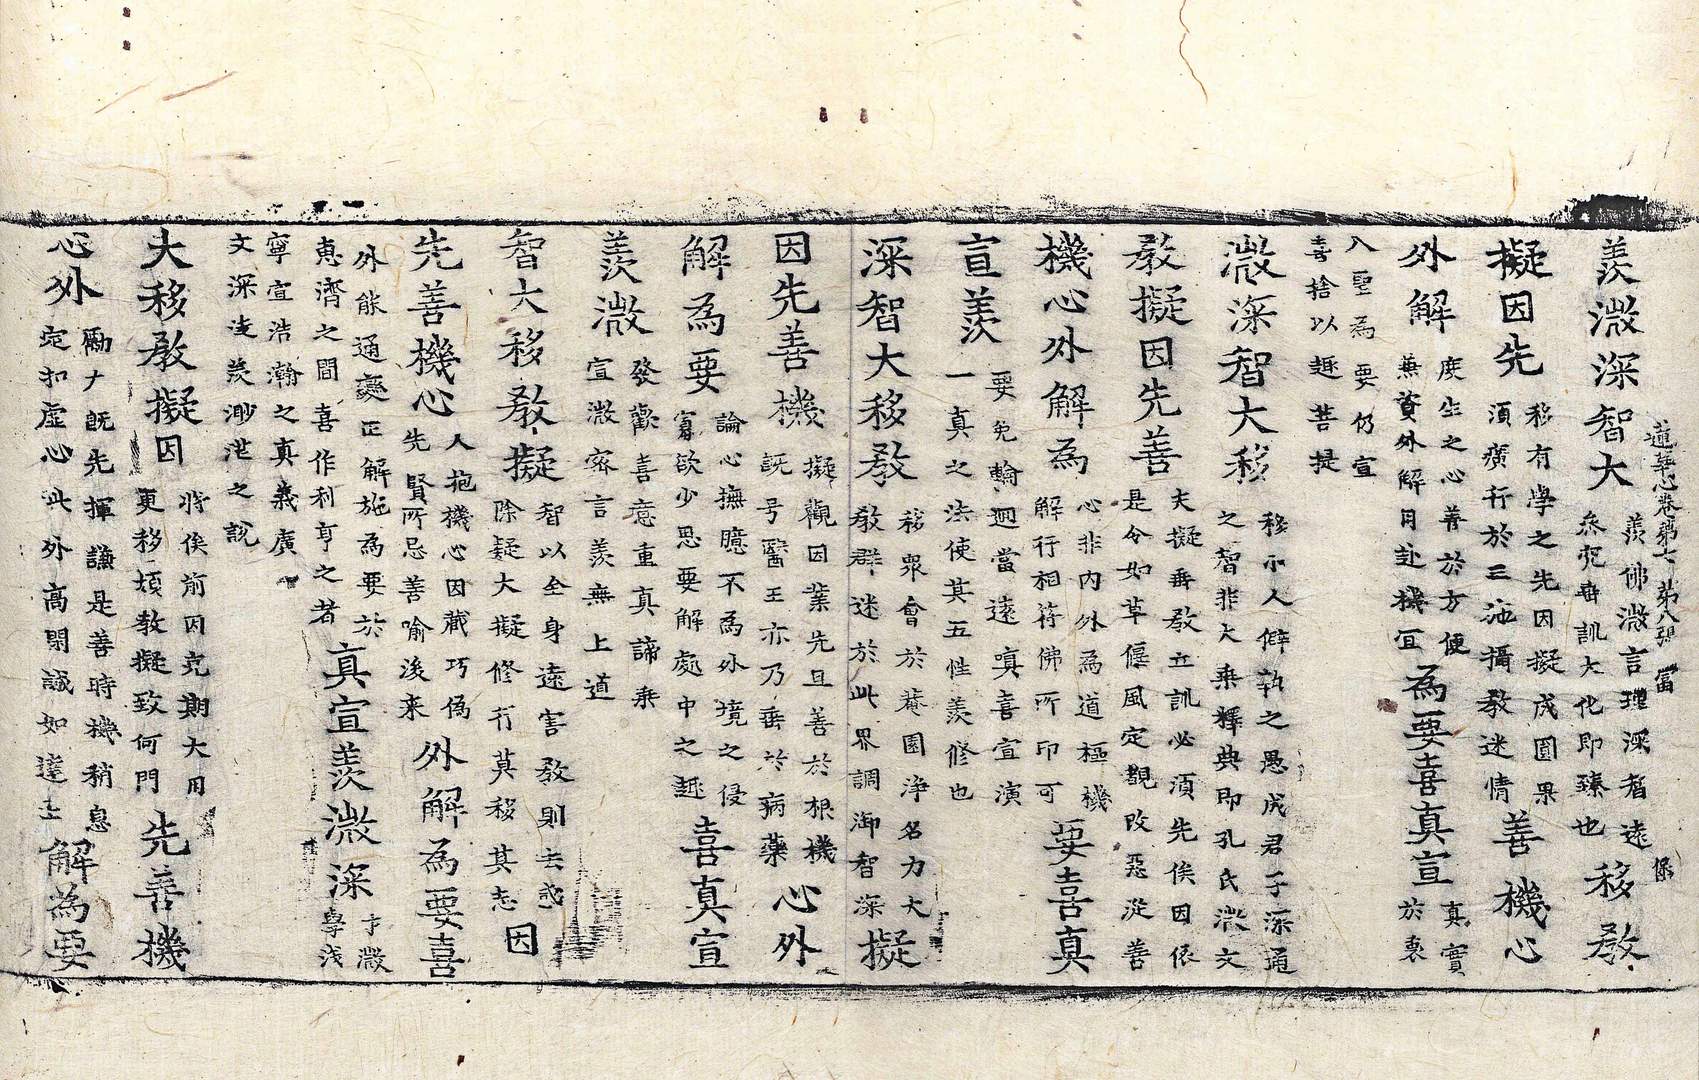 蓮華心卷第七 第八張 富
羨微深智大
羨佛微言理深者遠
垂訓大化即臻也
移教
擬因先
移有學之先因擬成圓果
須廣行於三池攝教迷情
善機心
外解
度生之心善於方便
無資外解月赴機冝
為要喜真宣
真實
於裏
入聖為要仍宣
喜捨以趣菩提
微深智大移
移小人僻執之愚成君子深通
之智非大乘釋典即孔氏微文
教擬因先善
夫擬垂教立訓必須先俟因依
是令如草偃風定覩改惡從善
機心外解為
心非内外為道樞機
解行相符佛所印可
要喜真
宣羨
要免輪迴當遠嗔喜宣演
一真之法使其五性羨修也
深智大移教
移衆會於菴園淨名力大
教群迷於此界調御智深
擬
因先善機
擬觀因業先且善於根機
既号醫王亦乃垂於病藥
心外
解為要
論心撫臆不為外境之侵
寡欲少思要解處中之趣
喜真宣
羨微
發歡喜意重真諦乘
宣微密言羨無上道
智大移教擬
智以全身遠害教則去惑
除疑大擬修行莫移其志
因
先善機心
人抱機心因藏巧偽
先賢所忌善喻後来
外解為要喜
外能通變正解施為要於
惠濟之間喜作利亨之者
真宣羨微深
于微
學淺
寧宣浩瀚之真義廣
文深淺羨渺茫之說
大移教擬因
將俟前因克期大用
更移頑教擬致何門
先善機
心外
勵力既先撝謙是善時機稍息
定扣虛心此外高閑誠如達士
解為要